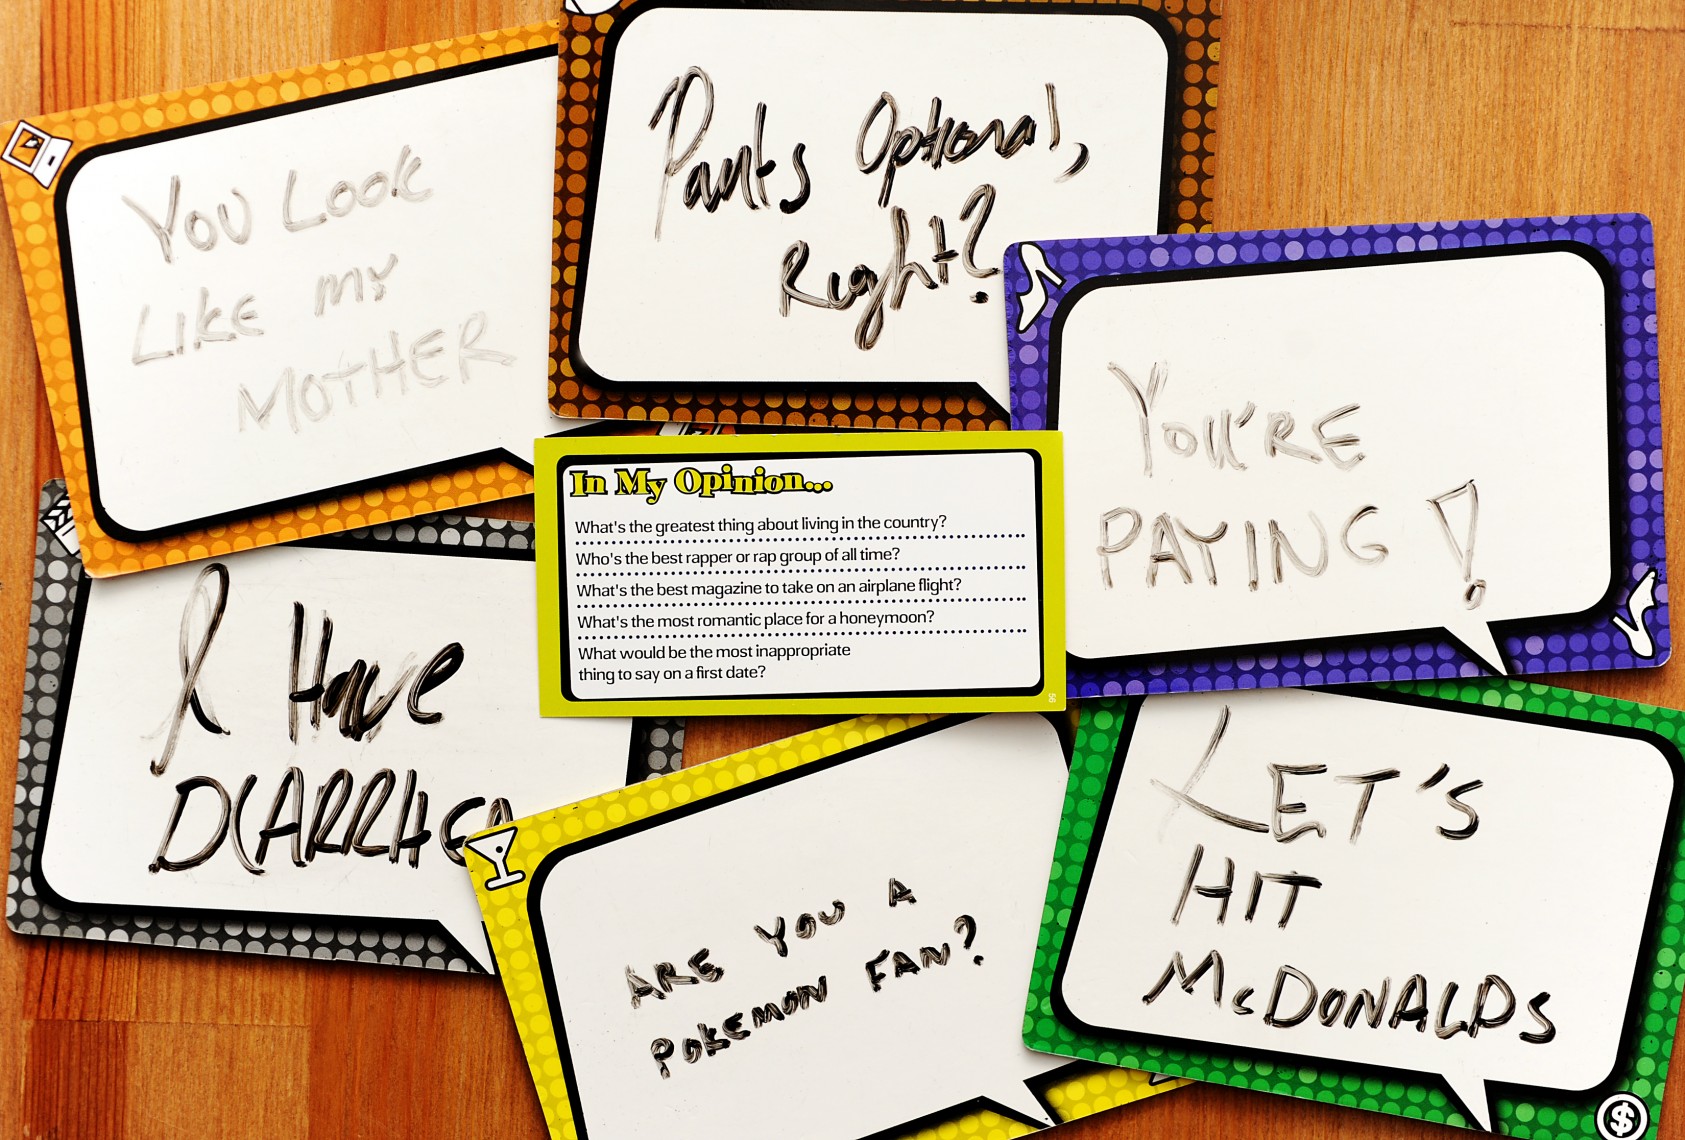 YOU LOOK
LIKE MY
MOTHER
Pants Optional,
Right?
YOU'RE
PAYING!
In My Opinion...
What's the greatest thing about living in the country?
Who's the best rapper or rap group of all time?
What's the best magazine to take on an airplane flight?
What's the most romantic place for a honeymoon?
What would be the most inappropriate
thing to say on a first date?
56
I Have
DIARRHEA
ARE YOU A
POKEMON FAN?
LET'S
HIT
McDONALDS
$